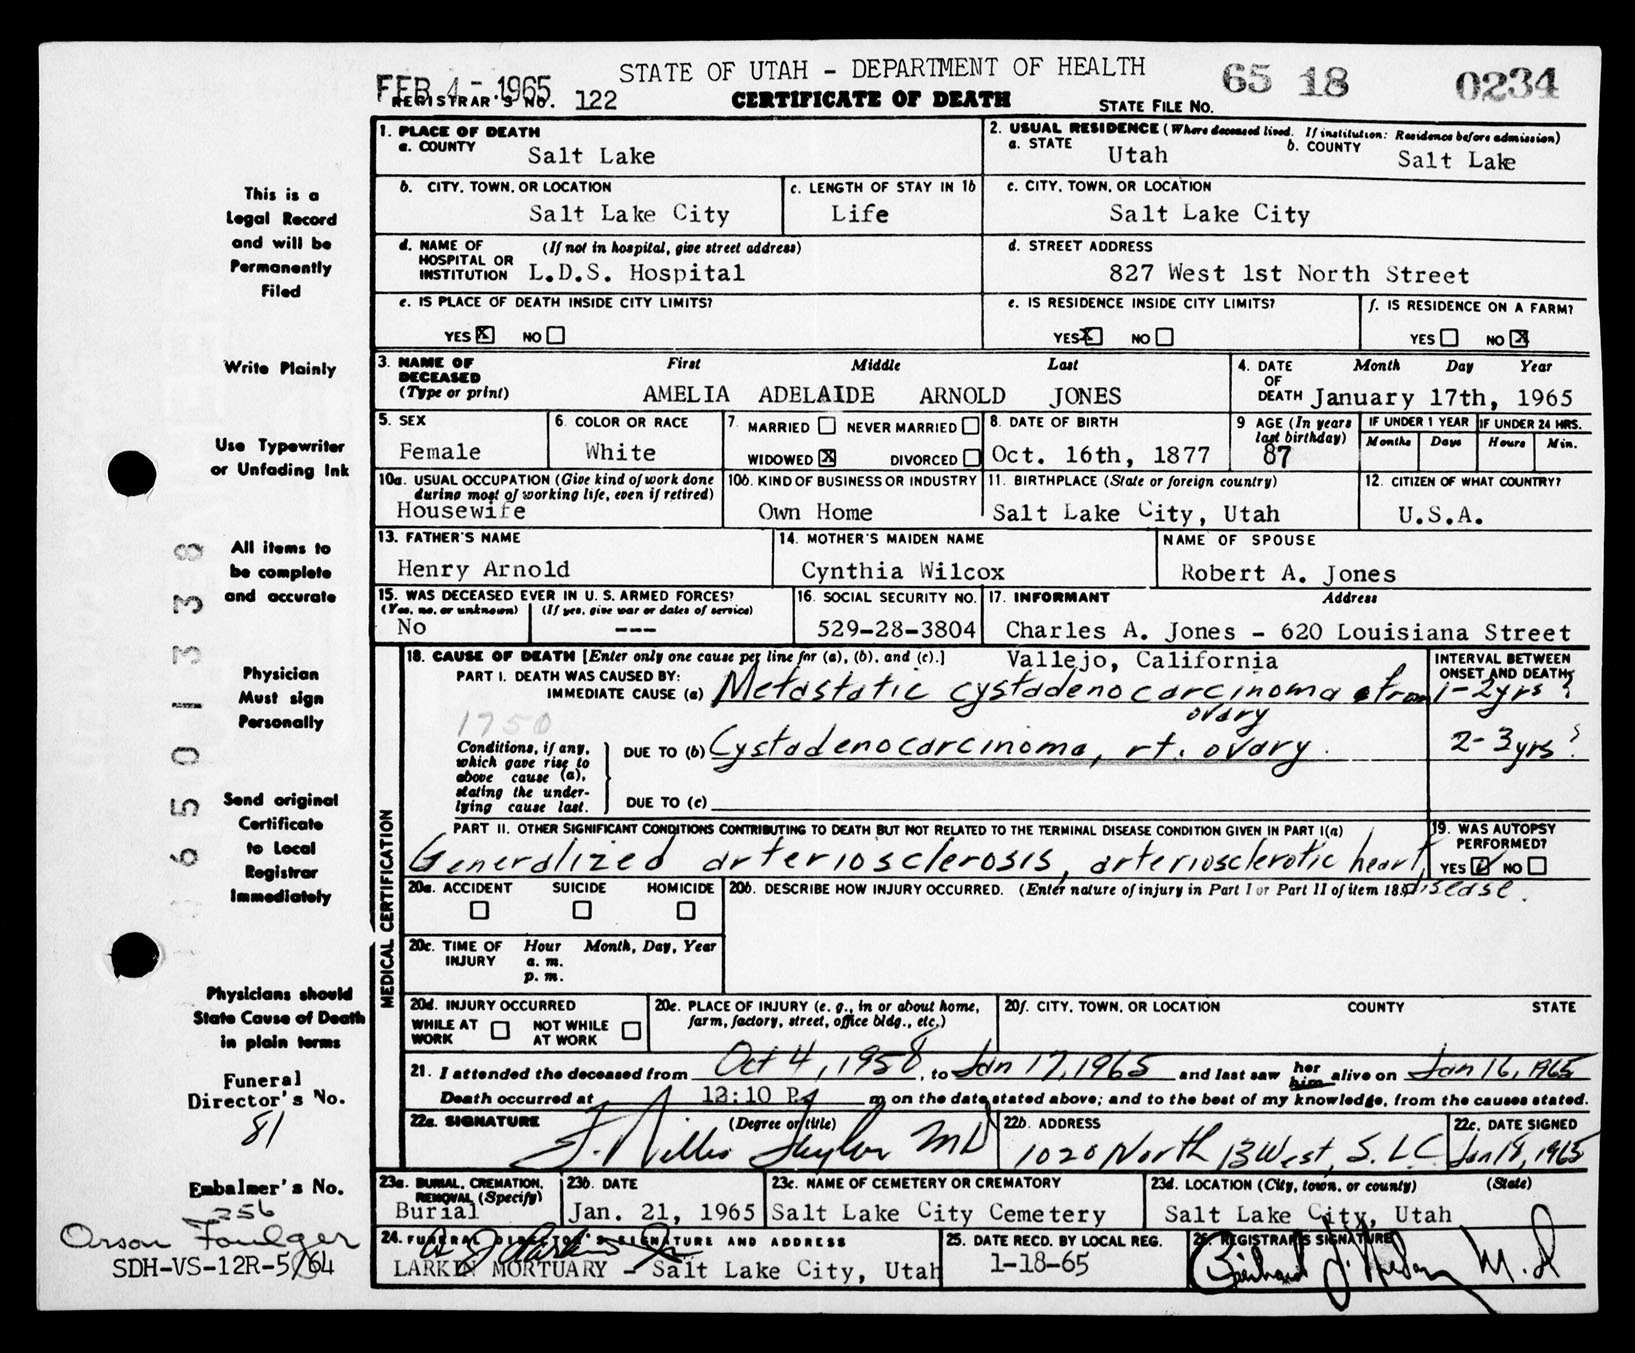 FEB 4 - 1965
STATE OF UTAH - DEPARTMENT OF HEALTH
65 18 0234
REGISTRAR'S NO. 122
CERTIFICATE OF DEATH
STATE FILE NO.
This is a
Legal Record
and will be
Permanently
Filed
Write Plainly
Use Typewriter
or Unfading Ink
All items to
be complete
and accurate
Physician
Must sign
Personally
Send original
Certificate
to Local
Registrar
immediately
Physicians should
State Cause of Death
in plain terms
Funeral
Director's No.
81
Embalmer's No.
256
Orson Foulger
SDH-VS-12R-5/64
1. PLACE OF DEATH
a. COUNTY Salt Lake
2. USUAL RESIDENCE (Where deceased lived. If institution: Residence before admission)
a. STATE Utah b. COUNTY Salt Lake
b. CITY, TOWN, OR LOCATION Salt Lake City
c. LENGTH OF STAY IN 1b Life
c. CITY, TOWN, OR LOCATION Salt Lake City
d. NAME OF HOSPITAL OR INSTITUTION (If not in hospital, give street address) L.D.S. Hospital
d. STREET ADDRESS 827 West 1st North Street
e. IS PLACE OF DEATH INSIDE CITY LIMITS?
YES X NO
e. IS RESIDENCE INSIDE CITY LIMITS?
YES X NO
f. IS RESIDENCE ON A FARM?
YES NO X
3. NAME OF DECEASED (Type or print) First Middle Last
AMELIA ADELAIDE ARNOLD JONES
4. DATE OF DEATH Month Day Year
January 17th, 1965
5. SEX Female
6. COLOR OR RACE White
7. MARRIED NEVER MARRIED
WIDOWED X DIVORCED
8. DATE OF BIRTH Oct. 16th, 1877
9 AGE (In years last birthday) 87
IF UNDER 1 YEAR Months Days
IF UNDER 24 HRS. Hours Min.
10a. USUAL OCCUPATION (Give kind of work done during most of working life, even if retired) Housewife
10b. KIND OF BUSINESS OR INDUSTRY Own Home
11. BIRTHPLACE (State or foreign country) Salt Lake City, Utah
12. CITIZEN OF WHAT COUNTRY? U.S.A.
13. FATHER'S NAME Henry Arnold
14. MOTHER'S MAIDEN NAME Cynthia Wilcox
NAME OF SPOUSE Robert A. Jones
15. WAS DECEASED EVER IN U. S. ARMED FORCES?
(Yes, no, or unknown) (If yes, give war or dates of service)
No ---
16. SOCIAL SECURITY NO. 529-28-3804
17. INFORMANT Address
Charles A. Jones - 620 Louisiana Street
Vallejo, California
MEDICAL CERTIFICATION
18. CAUSE OF DEATH [Enter only one cause per line for (a), (b), and (c).]
INTERVAL BETWEEN ONSET AND DEATH
PART I. DEATH WAS CAUSED BY:
IMMEDIATE CAUSE (a) Metastatic cystadenocarcinoma from ovary 1-2yrs?
1750
Conditions, if any, which gave rise to above cause (a), stating the underlying cause last.
DUE TO (b) Cystadenocarcinoma, rt. ovary. 2-3yrs?
DUE TO (c)
PART II. OTHER SIGNIFICANT CONDITIONS CONTRIBUTING TO DEATH BUT NOT RELATED TO THE TERMINAL DISEASE CONDITION GIVEN IN PART I(a)
Generalized arteriosclerosis, arteriosclerotic heart disease.
19. WAS AUTOPSY PERFORMED?
YES NO
20a. ACCIDENT SUICIDE HOMICIDE
20b. DESCRIBE HOW INJURY OCCURRED. (Enter nature of injury in Part I or Part II of item 18.)
20c. TIME OF INJURY Hour Month, Day, Year
a. m.
p. m.
20d. INJURY OCCURRED
WHILE AT WORK NOT WHILE AT WORK
20e. PLACE OF INJURY (e. g., in or about home, farm, factory, street, office bldg., etc.)
20f. CITY, TOWN, OR LOCATION COUNTY STATE
21. I attended the deceased from Oct 4, 1958, to Jan 17, 1965 and last saw her him alive on Jan 16, 1965
Death occurred at 12:10 P. m on the date stated above; and to the best of my knowledge, from the causes stated.
22a. SIGNATURE (Degree or title)
MD
22b. ADDRESS 1020 North 13 West, S.L.C.
22c. DATE SIGNED Jan 18, 1965
23a. BURIAL, CREMATION, REMOVAL (Specify) Burial
23b. DATE Jan. 21, 1965
23c. NAME OF CEMETERY OR CREMATORY Salt Lake City Cemetery
23d. LOCATION (City, town, or county) (State) Salt Lake City, Utah
24. FUNERAL DIRECTOR'S SIGNATURE AND ADDRESS
LARKIN MORTUARY - Salt Lake City, Utah
25. DATE RECD. BY LOCAL REG. 1-18-65
26. REGISTRAR'S SIGNATURE
M.D